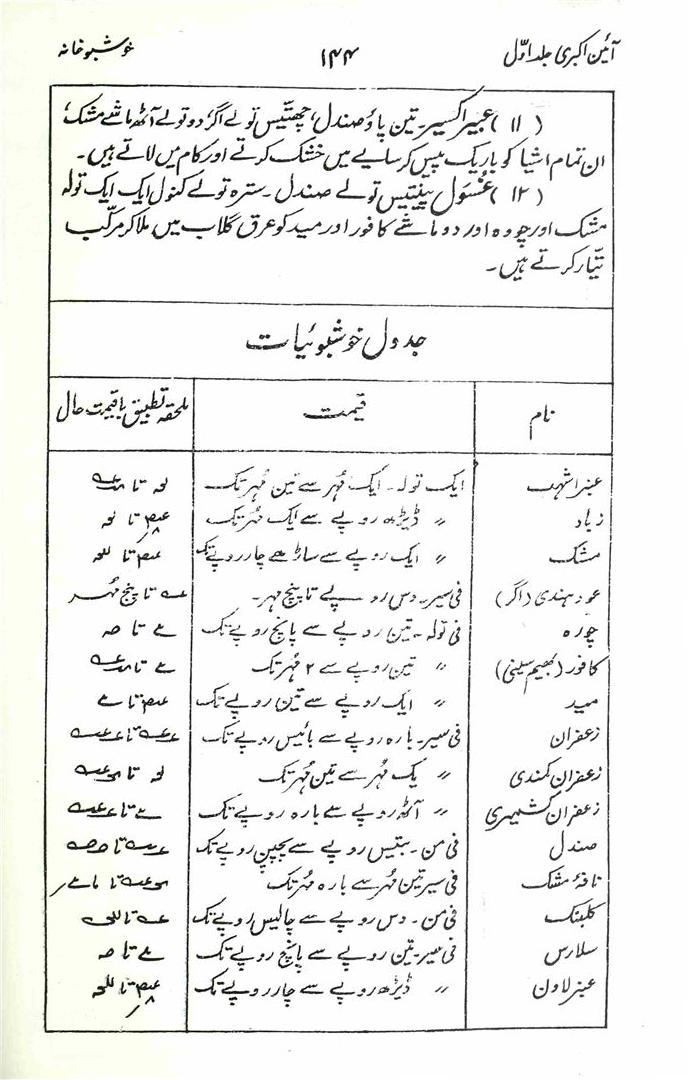 آئین اکبری جلد اوّل ۱۴۴ خوشبو خانہ
(۱۱) عبیر اکسیر۔ تین پاؤ صندل، چھتّیس تولے اگر دو تولے آٹھ ماشے مشک،
ان تمام اشیا کو باریک پیس کر سایے میں خشک کرتے اور کام میں لاتے ہیں۔
(۱۲) غُسول پینتیس تولے صندل۔ سترہ تولے کنول ایک ایک تولہ
مشک اور چووہ اور دو ماشے کافور اور مید کو عرق گلاب میں ملا کر مرکّب
تیّار کرتے ہیں۔
جدول خوشبوئیات
نام قیمت ملحقہ تطبیق با قیمت حال
عنبر اشہب ایک تولہ۔ ایک مُہر سے تین مُہر تک
زباد 〃 ڈیڑھ روپے سے ایک مُہر تک
مشک 〃 ایک روپے سے ساڑھے چار روپے تک
عود ہندی (اگر) فی سیر۔ دس روپے تا پنج مہر۔ تا پنج مُہر
چورہ فی تولہ۔ تین روپے سے پانچ روپے تک
کافور (بھیم سینی) 〃 تین روپے سے ۲ مُہر تک
مید 〃 ایک روپے سے تین روپے تک
زعفران فی سیر۔ بارہ روپے سے بائیس روپے تک
زعفران کمندی 〃 یک مُہر سے تین مُہر تک
زعفران کشمیری 〃 آٹھ روپے سے بارہ روپے تک
صندل فی من۔ بتیس روپے سے پچپن روپے تک
نافۂ مشک فی سیر تین مُہر سے بارہ مُہر تک
کلنبک فی من۔ دس روپے سے چالیس روپے تک
سلارس فی سیر۔ تین روپے سے پانچ روپے تک
عنبر لاون 〃 ڈیڑھ روپے سے چار روپے تک